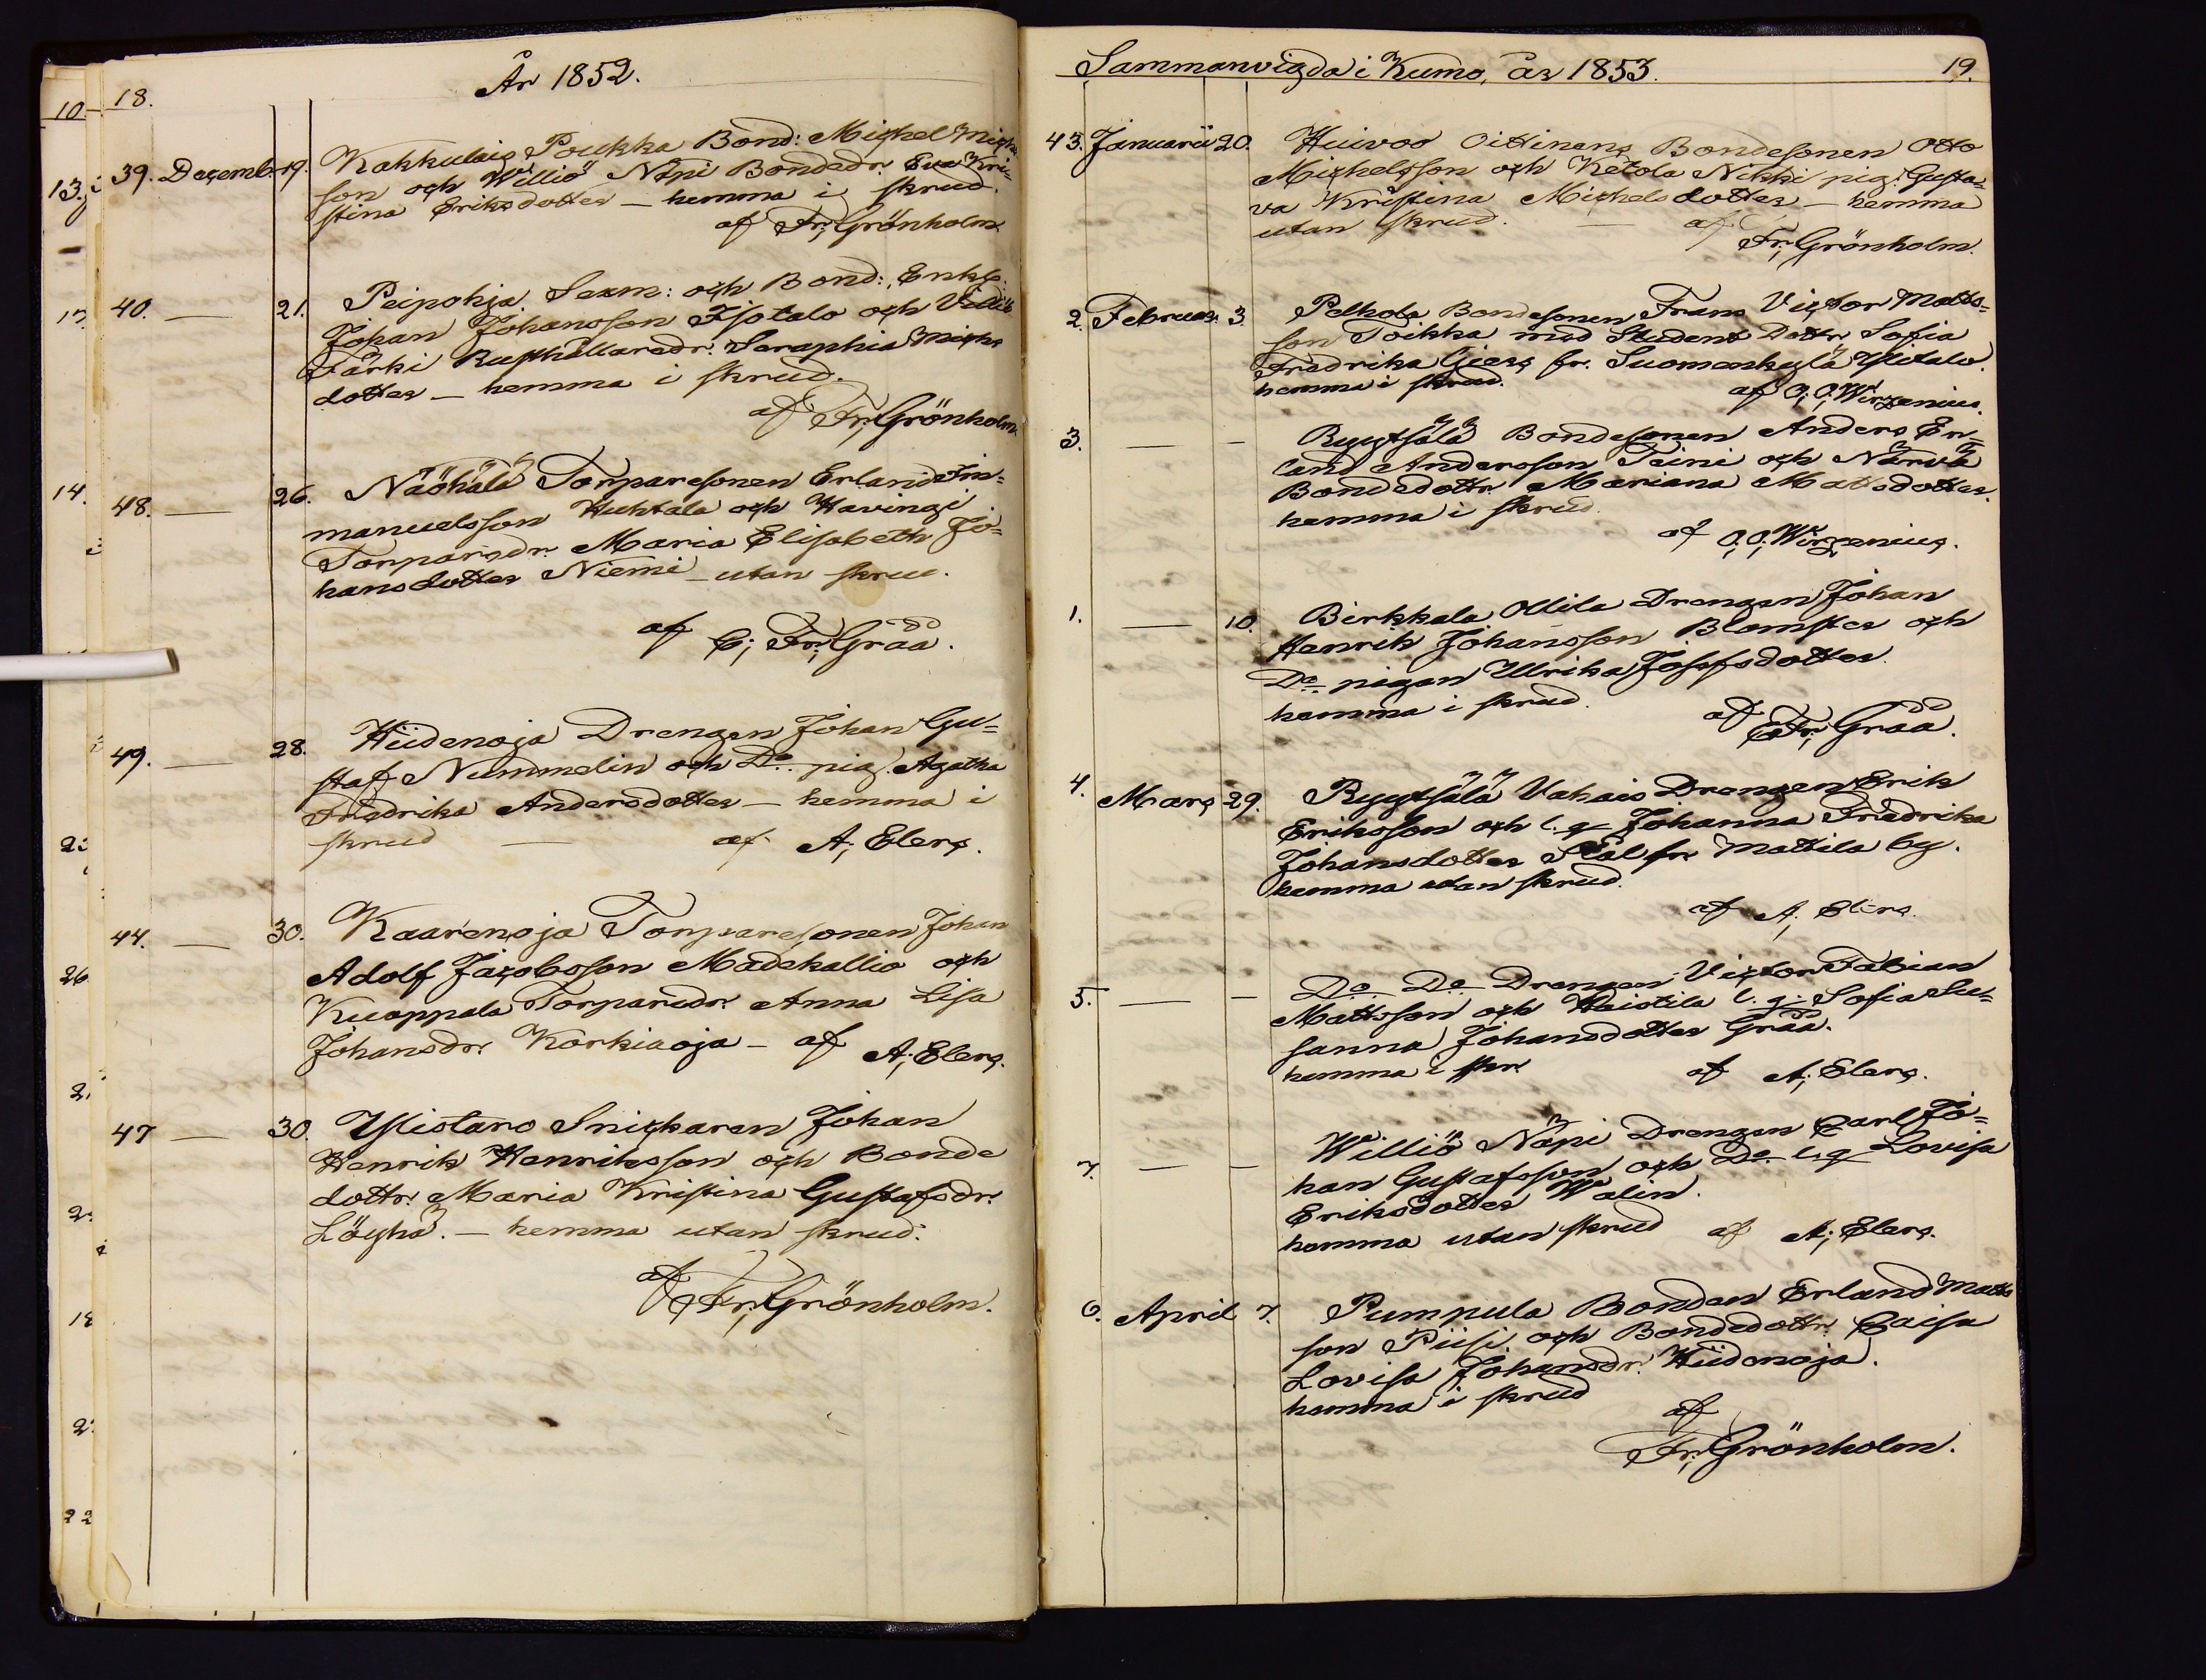 18.
År 1852.
39. Decemb. 19. Kakkulais Poukka Bond: Michel Mich
son och Williö Näpi Bondedr. Eva Kri-
stina Eriksdotter — hemma i skrud.
af Fr; Grönholm
40. — 21. Peipohja Sexm: och Bond: Enkl:
Johan Johansson Isotalo och
Färki Rusthållaredr. Seraphia Michs
dotter — hemma i skrud.
af Fr; Grönholm
48. — 26. Näöhälä Torparesonen Erland Im=
manuelsson Huhtala och Havingi
Torparedr. Maria Elisabeth Jo=
hansdotter Niemi — utan skrud.
af C; Fr; Gråå.
49. — 28. Hiidenoja Drengen Johan Gu=
staf Nummelin och Do. pig. Agatha
Fredrika Andersdotter — hemma i
skrud — af A; Elers.
44. — 30. Kaarenoja Torparesonen Johan
Adolf Jacobsson Madekallio och
Kuoppala Torparedr. Anna Lisa
Johansdr. Korkiaoja — af A; Elers.
47 — 30. Ylistaro Snickaren Johan
Henrik Henriksson och Bonde
dottr. Maria Kristina Gustafsdr.
Löyhä. — hemma utan skrud.
af
Fr; Grönholm.
Sammanvigda i Kumo, år 1853. 19.
43. Januarii 20. Huivoo Oittinens Bondesonen Otto
Michelsson och Ketola Nikki pig. Gusta=
va Kristina Michelsdotter — hemma
utan skrud. — af
Fr; Grönholm.
2. Februar. 3. Pelhola Bondesonen Frans Victor Matts=
son Toikka med Student Dottr. Sofia
Fredrika Giers fr. Suomenkylä Ylitalo.
hemma i skrud. af O; O; Wirzenius.
3. — — Ryytsälä Bondesonen Anders Er=
land Andersson Peini och Närvä
Bondedottr. Mariana Mattsdotter.
hemma i skrud.
af O; O; Wirzenius.
1. — 10. Birkkala Ollila Drengen Johan
Henrik Johansson Blomster och
Do. pigan Ulrika Josefsdotter.
hemma i skrud. af
C Fr; Gråå.
4. Mars 29. Ryytsälä Vahais Drengen Erik
Eriksson och l. q. Johanna Fredrika
Johansdotter Stål fr. Mattila by.
hemma utan skrud.
af A; Elers.
5. — — Do Do Drengen Victor Fabian
Mattsson och Haistila l. q. Sofia Su=
sanna Johansdotter Gråå.
hemma i skr. af A; Elers.
7. — — Williö Näpi Drengen Carl Jo=
han Gustafsson och Do. l. q. Lovisa
Eriksdotter Walin.
hemma utan skrud af A; Elers.
6. April 7. Pumpula Bonden Erland Matts
son Piisi och Bondedottr. Caisa
Lovisa Johansdr. Hiidenoja.
hemma i skrud
af
Fr; Grönholm.